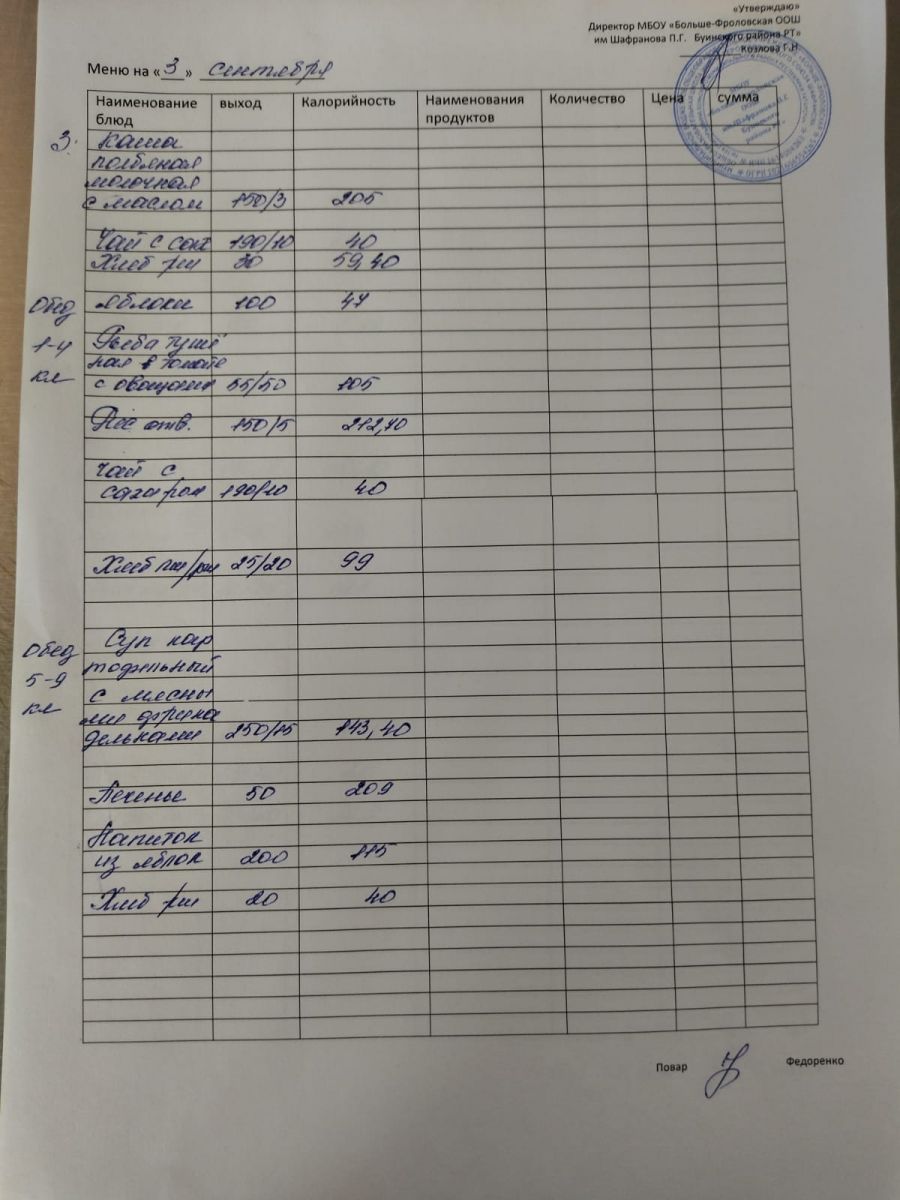 «Утверждаю»
Директор МБОУ «Больше-Фроловская ООШ
им Шафранова П.Г. Буинского района РТ»
Козлова Г.Н
Меню на «3» сентября
Наименование блюд выход Калорийность Наименования продуктов Количество Цена сумма
З. каша
полбяная
молочная
с маслом 150/3 205
Чай с сах 190/10 40
Хлеб рж 30 59,40
Яблоки 100 47
Обед
1-4
кл
Рыба тушё
ная в томате
с овощами 55/50 105
150/5 212,70
Чай с
сахаром 190/10 40
Хлеб пш/рж 25/20 99
Обед
5-9
кл
Суп кар
тофельный
с мясны
ми фрика
дельками 250/15 143,40
Печенье 50 209
Напиток
из яблок 200 115
Хлеб рж 20 40
Повар Федоренко